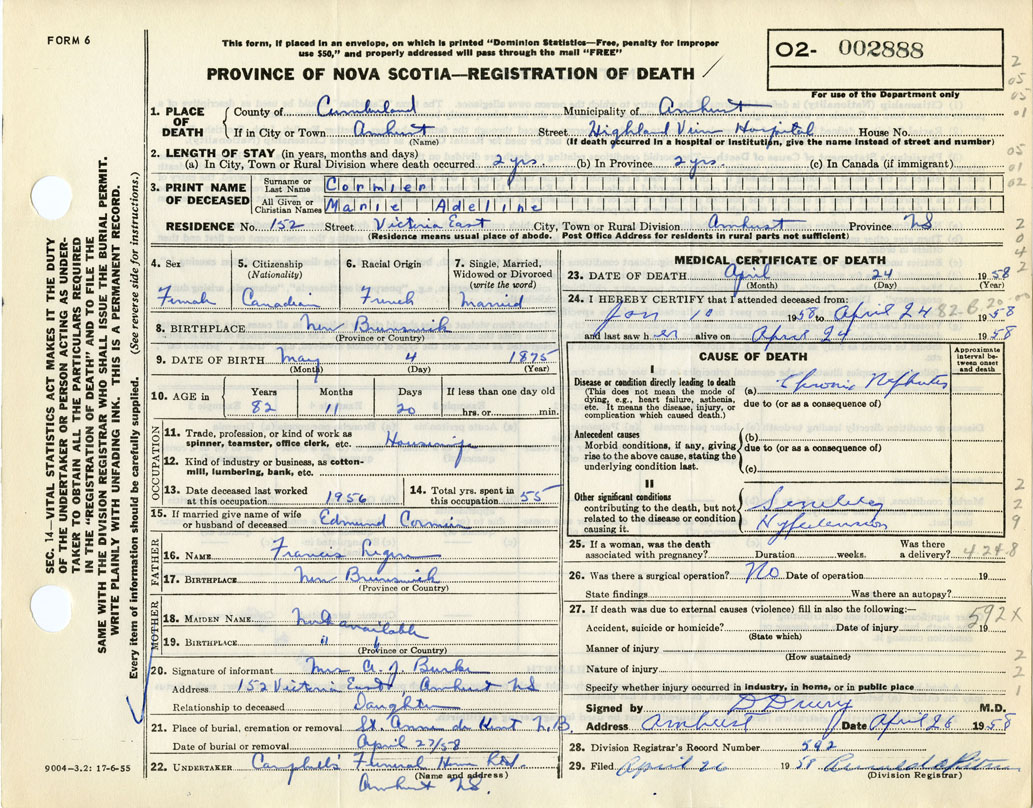 FORM 6
This form, if placed in an envelope, on which is printed "Dominion Statistics—Free, penalty for improper
use $50," and properly addressed will pass through the mail "FREE"
PROVINCE OF NOVA SCOTIA—REGISTRATION OF DEATH
02- 002888
For use of the Department only
SEC. 14—VITAL STATISTICS ACT MAKES IT THE DUTY
OF THE UNDERTAKER OR PERSON ACTING AS UNDER-
TAKER TO OBTAIN ALL THE PARTICULARS REQUIRED
IN THE "REGISTRATION OF DEATH" AND TO FILE THE
SAME WITH THE DIVISION REGISTRAR WHO SHALL ISSUE THE BURIAL PERMIT.
WRITE PLAINLY WITH UNFADING INK. THIS IS A PERMANENT RECORD.
Every item of information should be carefully supplied. (See reverse side for instructions.)
1. PLACE OF DEATH
County of Cumberland Municipality of Amherst
If in City or Town Amherst Street Highland View Hospital House No.
(Name) (If death occurred in a hospital or Institution, give the name instead of street and number)
2. LENGTH OF STAY (in years, months and days)
(a) In City, Town or Rural Division where death occurred 2 yrs. (b) In Province 2 yrs. (c) In Canada (if immigrant)
3. PRINT NAME OF DECEASED
Surname or Last Name Cormier
All Given or Christian Names Marie Adeline
RESIDENCE No. 152 Street Victoria East City, Town or Rural Division Amherst Province NS
(Residence means usual place of abode. Post Office Address for residents in rural parts not sufficient)
4. Sex Female
5. Citizenship (Nationality) Canadian
6. Racial Origin French
7. Single, Married, Widowed or Divorced (write the word) Married
8. BIRTHPLACE New Brunswick
(Province or Country)
9. DATE OF BIRTH May 4 1875
(Month) (Day) (Year)
10. AGE in Years 82 Months 11 Days 20 If less than one day hrs. or min.
OCCUPATION
11. Trade, profession, or kind of work as spinner, teamster, office clerk, etc. Housewife
12. Kind of industry or business, as cotton-mill, lumbering, bank, etc.
13. Date deceased last worked at this occupation 1956
14. Total yrs. spent in this occupation 55
15. If married give name of wife or husband of deceased Edmund Cormier
FATHER
16. NAME Francis Leger
17. BIRTHPLACE New Brunswick
(Province or Country)
MOTHER
18. MAIDEN NAME Not available
19. BIRTHPLACE " "
(Province or Country)
20. Signature of informant Mrs A. J. Burke
Address 152 Victoria East, Amherst NS
Relationship to deceased Daughter
21. Place of burial, cremation or removal St. Anne de Kent N.B.
Date of burial or removal April 27/58
22. UNDERTAKER Campbells Funeral Home
(Name and address)
Amherst NS.
9004—3.2: 17-6-55
MEDICAL CERTIFICATE OF DEATH
23. DATE OF DEATH April 24 1958
(Month) (Day) (Year)
24. I HEREBY CERTIFY that I attended deceased from:
Jan 10 1958 to April 24 1958
and last saw her alive on April 24 1958
CAUSE OF DEATH
Approximate interval between onset and death
I
Disease or condition directly leading to death (a) Chronic Nephritis
(This does not mean the mode of dying, e.g.: heart failure, asthenia, etc. It means the disease, injury, or complication which caused death.)
due to (or as a consequence of)
Antecedent causes (b)
Morbid conditions, if any, giving rise to the above cause, stating the underlying condition last.
due to (or as a consequence of)
(c)
II
Other significant conditions contributing to the death, but not related to the disease or condition causing it.
Senility
Hypertension
25. If a woman, was the death associated with pregnancy? Duration weeks. Was there a delivery?
26. Was there a surgical operation? No Date of operation 19
State findings Was there an autopsy?
27. If death was due to external causes (violence) fill in also the following:—
592X
Accident, suicide or homicide? Date of injury 19
(State which)
Manner of injury
(How sustained)
Nature of injury
Specify whether injury occurred in industry, in home, or in public place
Signed by D Drury M.D.
Address Amherst Date April 26 1958
28. Division Registrar's Record Number 592
29. Filed April 26 1958
(Division Registrar)